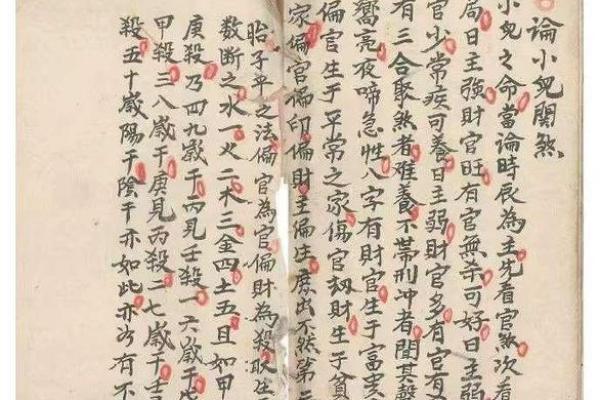 論小兒関煞
小兒之命當論時辰為主先看官煞次看
局日主強財官旺有官無杀可好日主弱
官少常疾可養日主弱財官多有官有
有三合聚煞者难養不带刑冲者聞其聲
嚮亮夜啼急性八字有財官生于富
偏官生于平常之家傷官刼財生于貧
家偏官偏印偏財主偏生庻出不然第二
胎子平之法偏官為官偏財為殺取生
数断之水一火二木三金四土五且如甲
庚殺乃四九歲干丙見壬殺一六歲干戊
甲殺三八歲干庚見丙殺二七歲干壬
殺五十歲陽干陰干亦如此亦有不